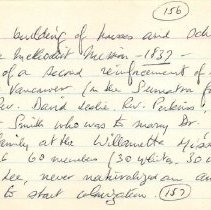 (156)
building of houses and sch
Methodist Mission - 1837 -
of a second reinforcement of
Vancouver (in the Sumatra fr
Rev. David Leslie, Rev. Perkins,
Smith who was to marry Dr.
family at the Willamette Miss
60 members (30 white, 30
Lee, never naturalized an
to start colonization (157)